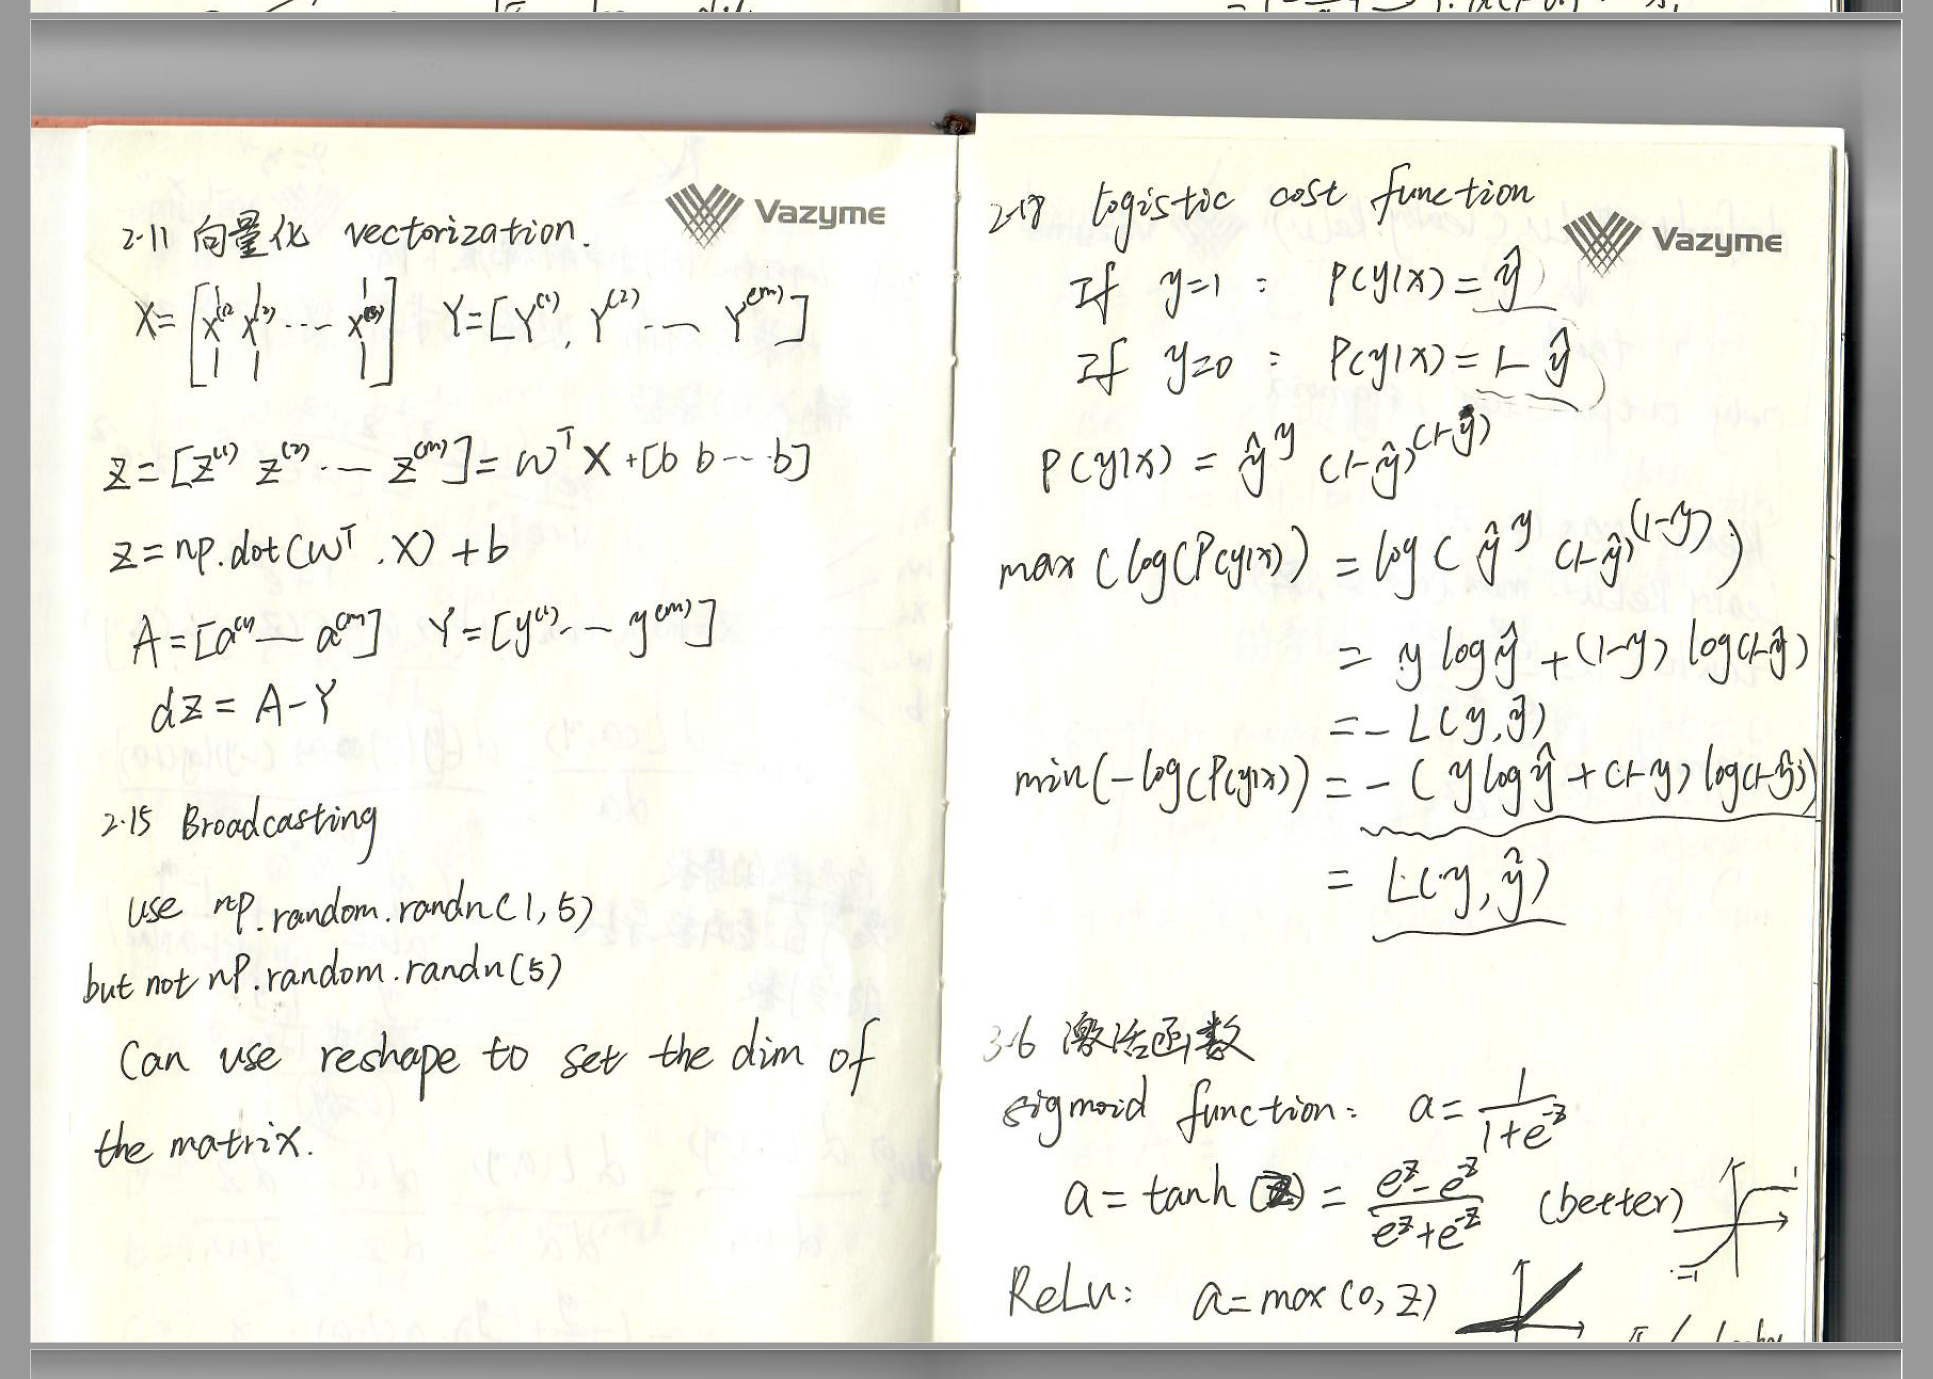 Vazyme
2-11 向量化 vectorization.
X = [x⁽¹⁾ x⁽²⁾ ... x⁽ᵐ⁾] Y = [Y⁽¹⁾, Y⁽²⁾ ... Y⁽ᵐ⁾]
Z = [z⁽¹⁾ z⁽²⁾ ... z⁽ᵐ⁾] = wᵀX + [b b ... b]
Z = np.dot(wᵀ, X) + b
A = [a⁽¹⁾ ... a⁽ᵐ⁾] Y = [y⁽¹⁾ ... y⁽ᵐ⁾]
dZ = A - Y
2.15 Broadcasting
use np.random.randn(1, 5)
but not np.random.randn(5)
Can use reshape to set the dim of
the matrix.
2-18 logistic cost function
Vazyme
If y=1 : P(y|x) = ŷ
If y=0 : P(y|x) = 1-ŷ
P(y|x) = ŷ^y (1-ŷ)^(1-y)
max (log(P(y|x)) = log( ŷ^y (1-ŷ)^(1-y) )
= y log ŷ + (1-y) log(1-ŷ)
= - L(y, ŷ)
min(-log(P(y|x)) = - ( y log ŷ + (1-y) log(1-ŷ))
= L(y, ŷ)
3-6 激活函数
sigmoid function: a = 1/(1+e^-z)
a = tanh (z) = (e^z - e^-z)/(e^z + e^-z) (better) 1
-1
ReLu: a = max(0, z)